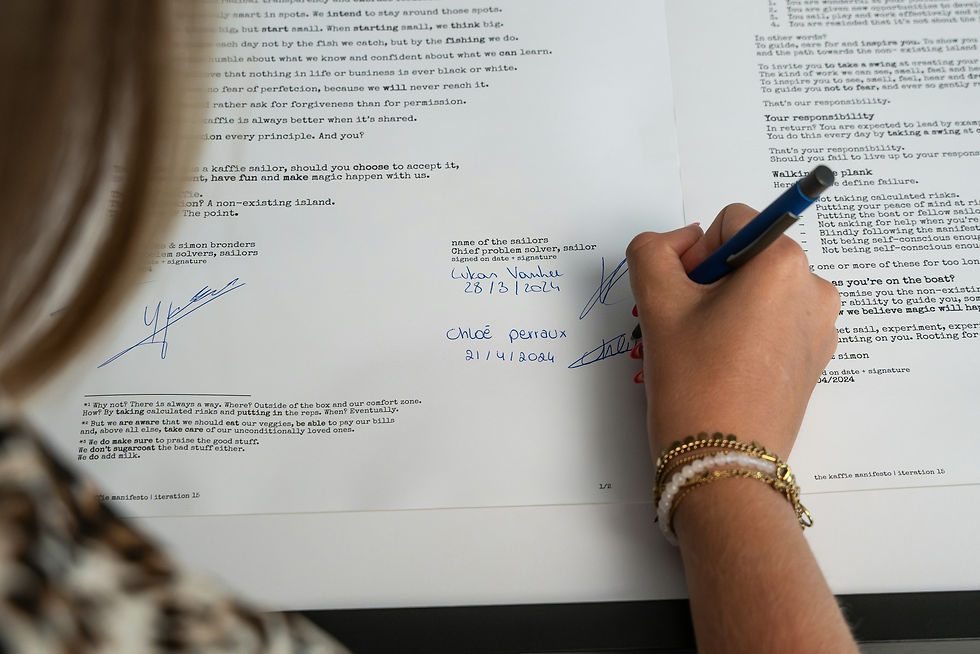 radical transparency and embrace
smart in spots. We intend to stay around those spots.
big, but start small. When starting small, we think big.
each day not by the fish we catch, but by the fishing we do.
humble about what we know and confident about what we can learn.
that nothing in life or business is ever black or white.
no fear of perfetcion, because we will never reach it.
rather ask for forgiveness than for permission.
kaffie is always better when it's shared.
every principle. And you?
a kaffie sailor, should you choose to accept it,
have fun and make magic happen with us.
A non-existing island.
The point.
& simon bronders
solvers, sailors
date + signature
name of the sailors
Chief problem solver, sailor
signed on date + signature
Lukas Vanhee
28/3/2024
Chloé Perraux
21/4/2024
*1 Why not? There is always a way. Where? Outside of the box and our comfort zone.
How? By taking calculated risks and putting in the reps. When? Eventually.
*2 But we are aware that we should eat our veggies, be able to pay our bills
and, above all else, take care of our unconditionally loved ones.
*3 We do make sure to praise the good stuff.
We don't sugarcoat the bad stuff either.
We do add milk.
manifesto | iteration 15
1/2
1. You are wonderful at your
2. You are given new opportunities to
3. You sail, play and work effectively and
4. You are reminded that it's not about the
In other words?
To guide, care for and inspire you. To show you
and the path towards the non-existing island
To invite you to take a swing at creating your
The kind of work we can see, smell, feel and
To inspire you to see, smell, feel, hear and
To guide you not to fear, and ever so gently
That's our responsibility.
Your responsibility
In return? You are expected to lead by
You do this every day by taking a swing at
That's your responsibility.
Should you fail to live up to your
Walking plank
define failure.
Not taking calculated risks.
Putting your peace of mind at
Putting the boat or fellow
- Not asking for help when you're
- Blindly following the
- Not being self-conscious
- Not being self-conscious
one or more of these for too
as you're on the boat?
you the non-existing
ability to guide you,
we believe magic will
set sail, experiment,
on you. Rooting for
simon
on date + signature
04/2024
the kaffie manifesto | iteration 15